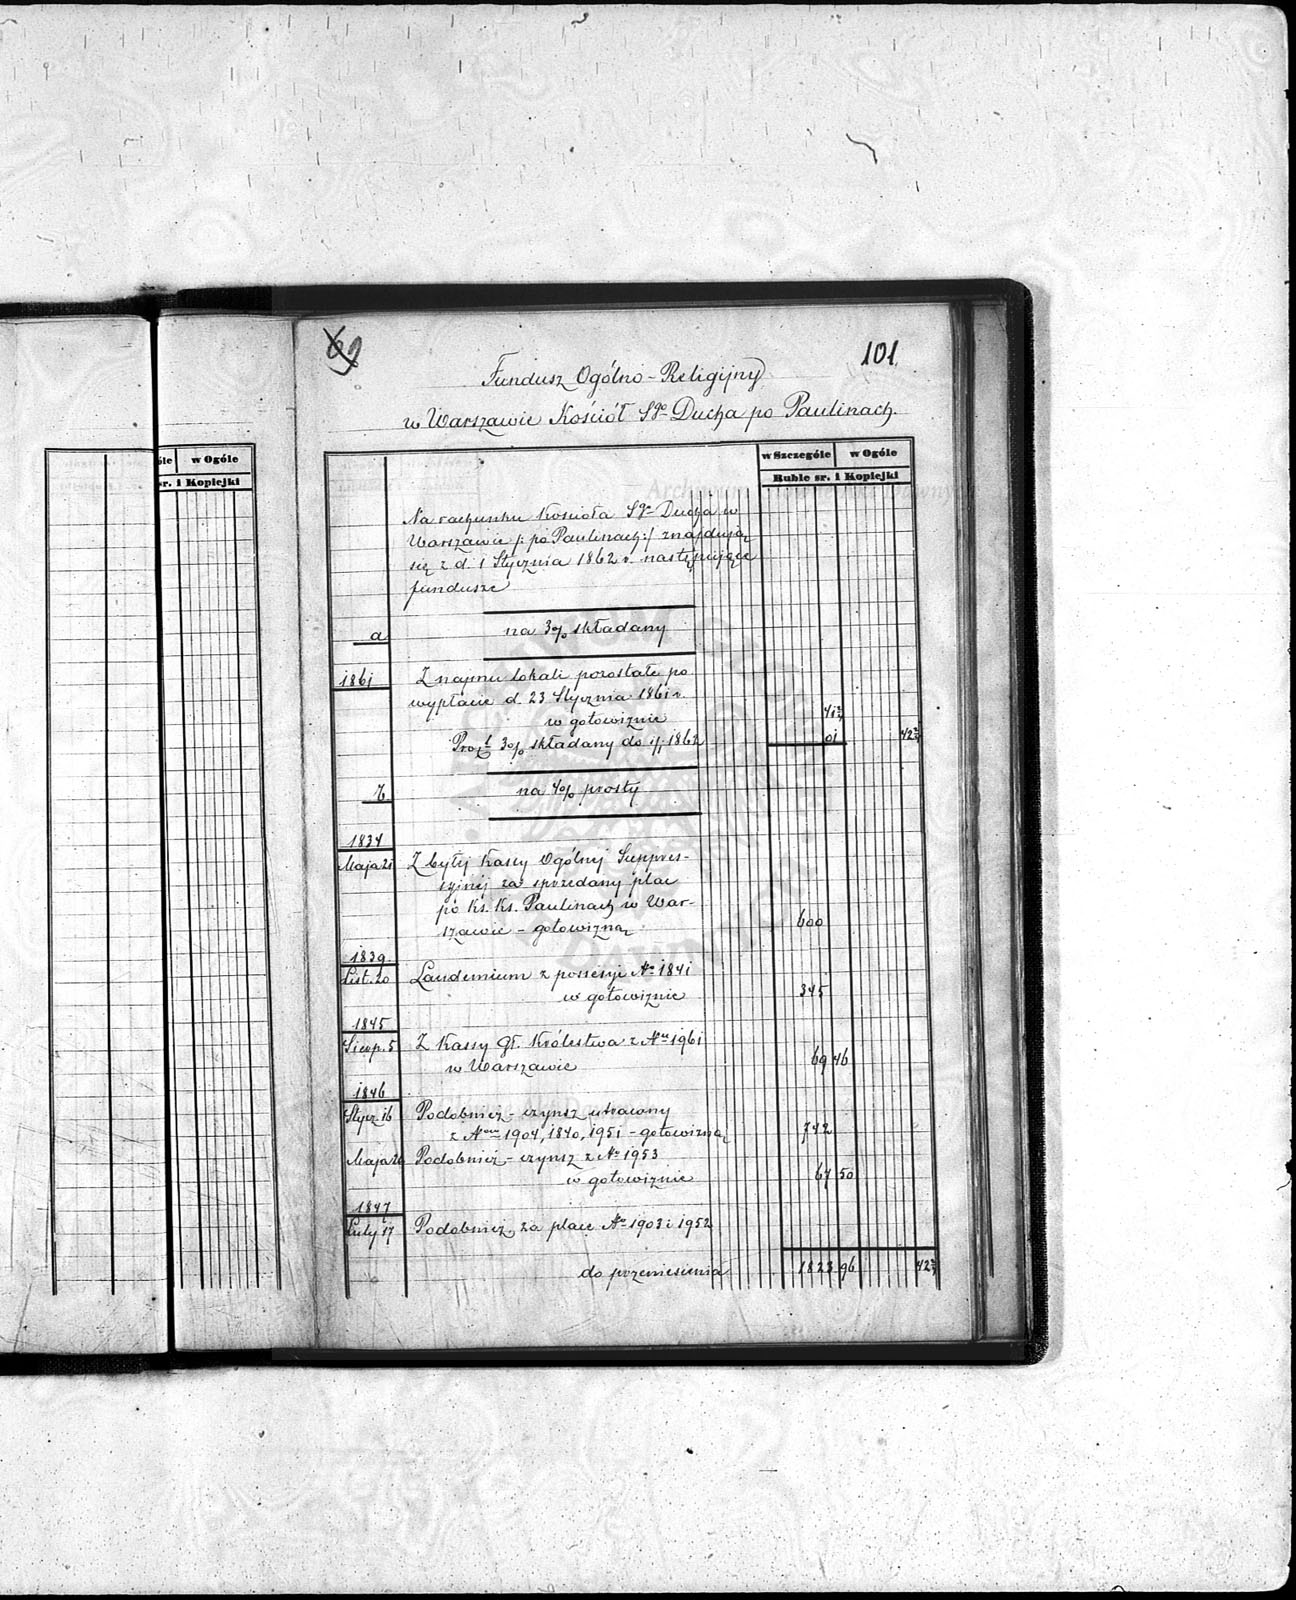 101.
Fundusz Ogólno-Religijny
w Warszawie Kościół Sgo Ducha po Paulinach.
w Szczególe w Ogóle
Ruble sr. i Kopiejki
w Ogóle
sr. i Kopiejki
Na rachunku Kościoła Sgo Ducha w
Warszawie /: po Paulinach :/ znajdują
się z d. 1 Stycznia 1862 r. następujące
fundusze
a na 3% składany
1861 Z najmu lokali pozostałe po
wypłacie d. 23 Stycznia 1861 r.
w gotowiznie 41 2/4
Prozt 3% składany do 1/1 1862 01 42 2/4
b. na 4% prosty
1834
Maja 21 Z byłej Kassy Ogólnej Suppres-
syjnej za sprzedany plac
po Ks. Ks. Paulinach w War-
szawie - gotowizną 600
1839.
List. 20 Laudemium z possesyi No 1841
w gotowiznie 345
1845
Sierp. 5 Z Kassy Gł. Królestwa z Nru 1961
w Warszawie 69 46
1846
Stycz. 16 Podobnież - czynsz utracony
z Nrów 1904, 1840, 1951 - gotowizną 742
Maja 26 Podobnież - czynsz z No 1953
w gotowiznie 67 50
1847
Luty 17 Podobnież, za place No 1903 i 1952
do przeniesienia 1823 96 42 2/4